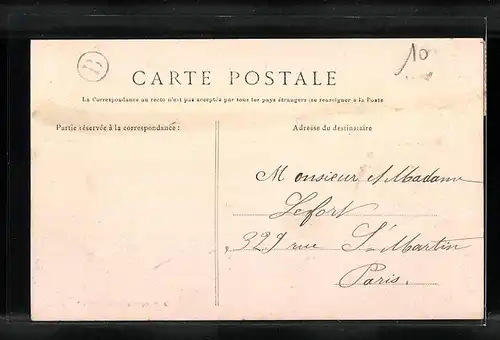 B
10
CARTE POSTALE
La Correspondance au recto n'est pas acceptée par tous les pays étrangers (se renseigner à la Poste
Partie réservée à la correspondance :
Adresse du destinataire
Monsieur et Madame
Lefort
329 rue St Martin
Paris.